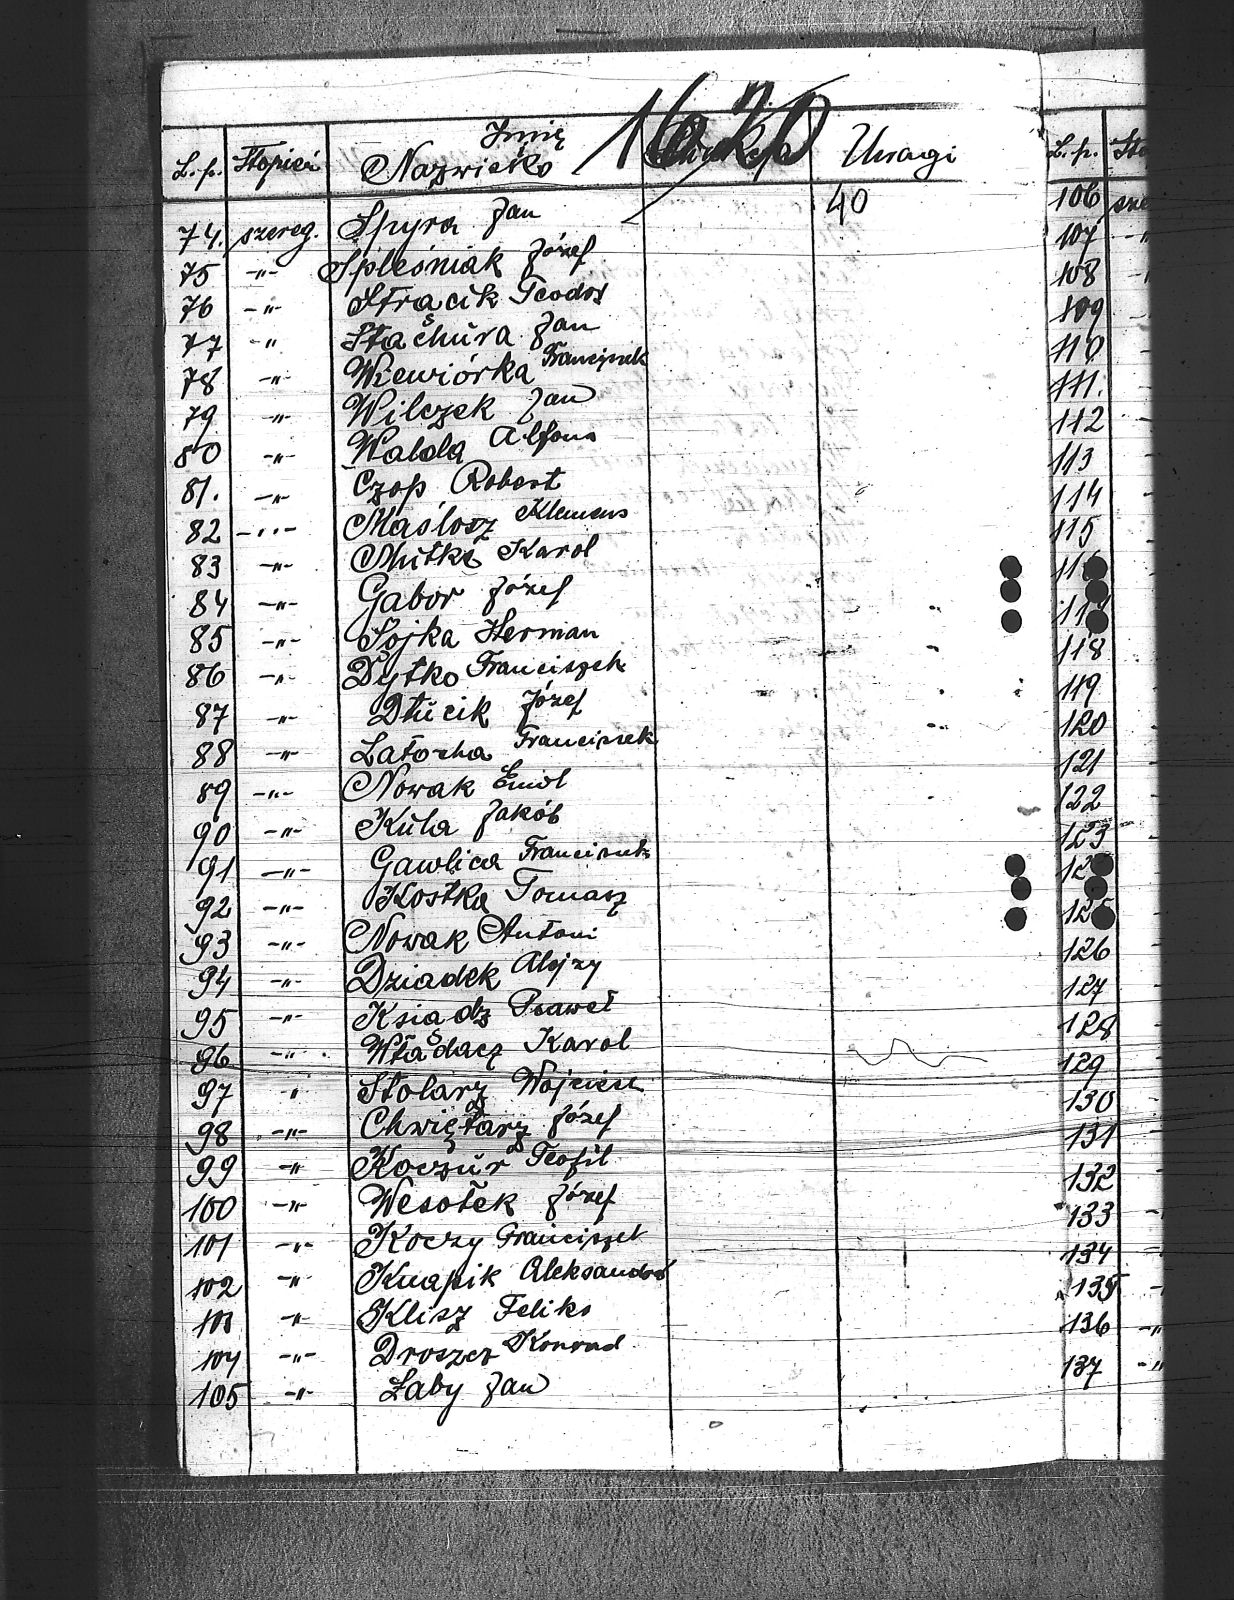 L.p. Stopień Imię Nazwisko Uwagi
40
74. szereg. Spyra Jan
75 -"- Spleśniak Józef
76 -"- Stracik Teodor
77 " Stachura Jan
78 -"- Wiewiórka Franciszek
79 -"- Wilczek Jan
80 -"- Walda Alfons
81. -"- Czop Robert
82 -"- Maślosz Klemens
83 -"- Karol
84 -"- Gabor Józef
85 -"- Sojka Herman
86 -"- Dytko Franciszek
87 -"- Dłucik Józef
88 -"- Latocha Franciszek
89 -"- Nowak Emil
90 -"- Kula Jakób
91 -"- Gawlica Franciszek
92 -"- Kostka Tomasz
93 -"- Nowak Antoni
94 -"- Dziadek Alojzy
95 -"- Ksiądz Paweł
96 -"- Karol
97 " Stolarz Wojciech
98 -"- Chwiętarz Józef
99 -"- Koczur Teofil
100 -"- Wesołek Józef
101 -"- Koczy Franciszek
102 -"- Knapik Aleksander
103 -"- Klisz Feliks
104 -"- Droszer Konrad
105 -"- Łaby Jan
L.p. Sto
106 sze
107 -"
108
109
110
111.
112
113
114
115
118
119
120
121
122
123
126
127
128
129
130
131
132
133
134
135
136 -"
137 -"